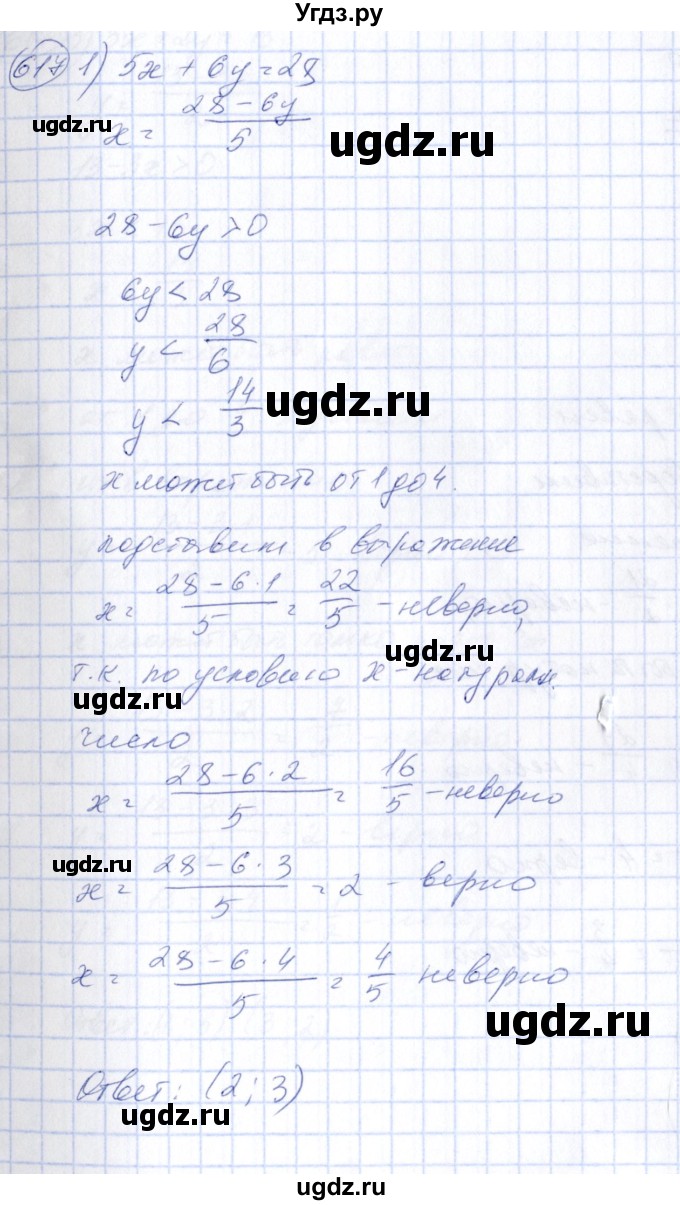 Угдз.ру
617 1) 5x + 6y = 28
ugdz.ru
x = (28 – 6y)/5
ugdz.ru
28 – 6y > 0
6y < 28
y < 28/6
y < 14/3
ugdz.ru
x может быть от 1 до 4.
подставим в выражение
x = (28 – 6 · 1)/5 = 22/5 – неверно,
ugdz.ru
т.к. по условию x – натуральн.
число
x = (28 – 6 · 2)/5 = 16/5 – неверно
ugdz.ru
x = (28 – 6 · 3)/5 = 2 – верно
x = (28 – 6 · 4)/5 = 4/5 неверно
ugdz.ru
Ответ: (2; 3)
ugdz.ru
ugdz.ru